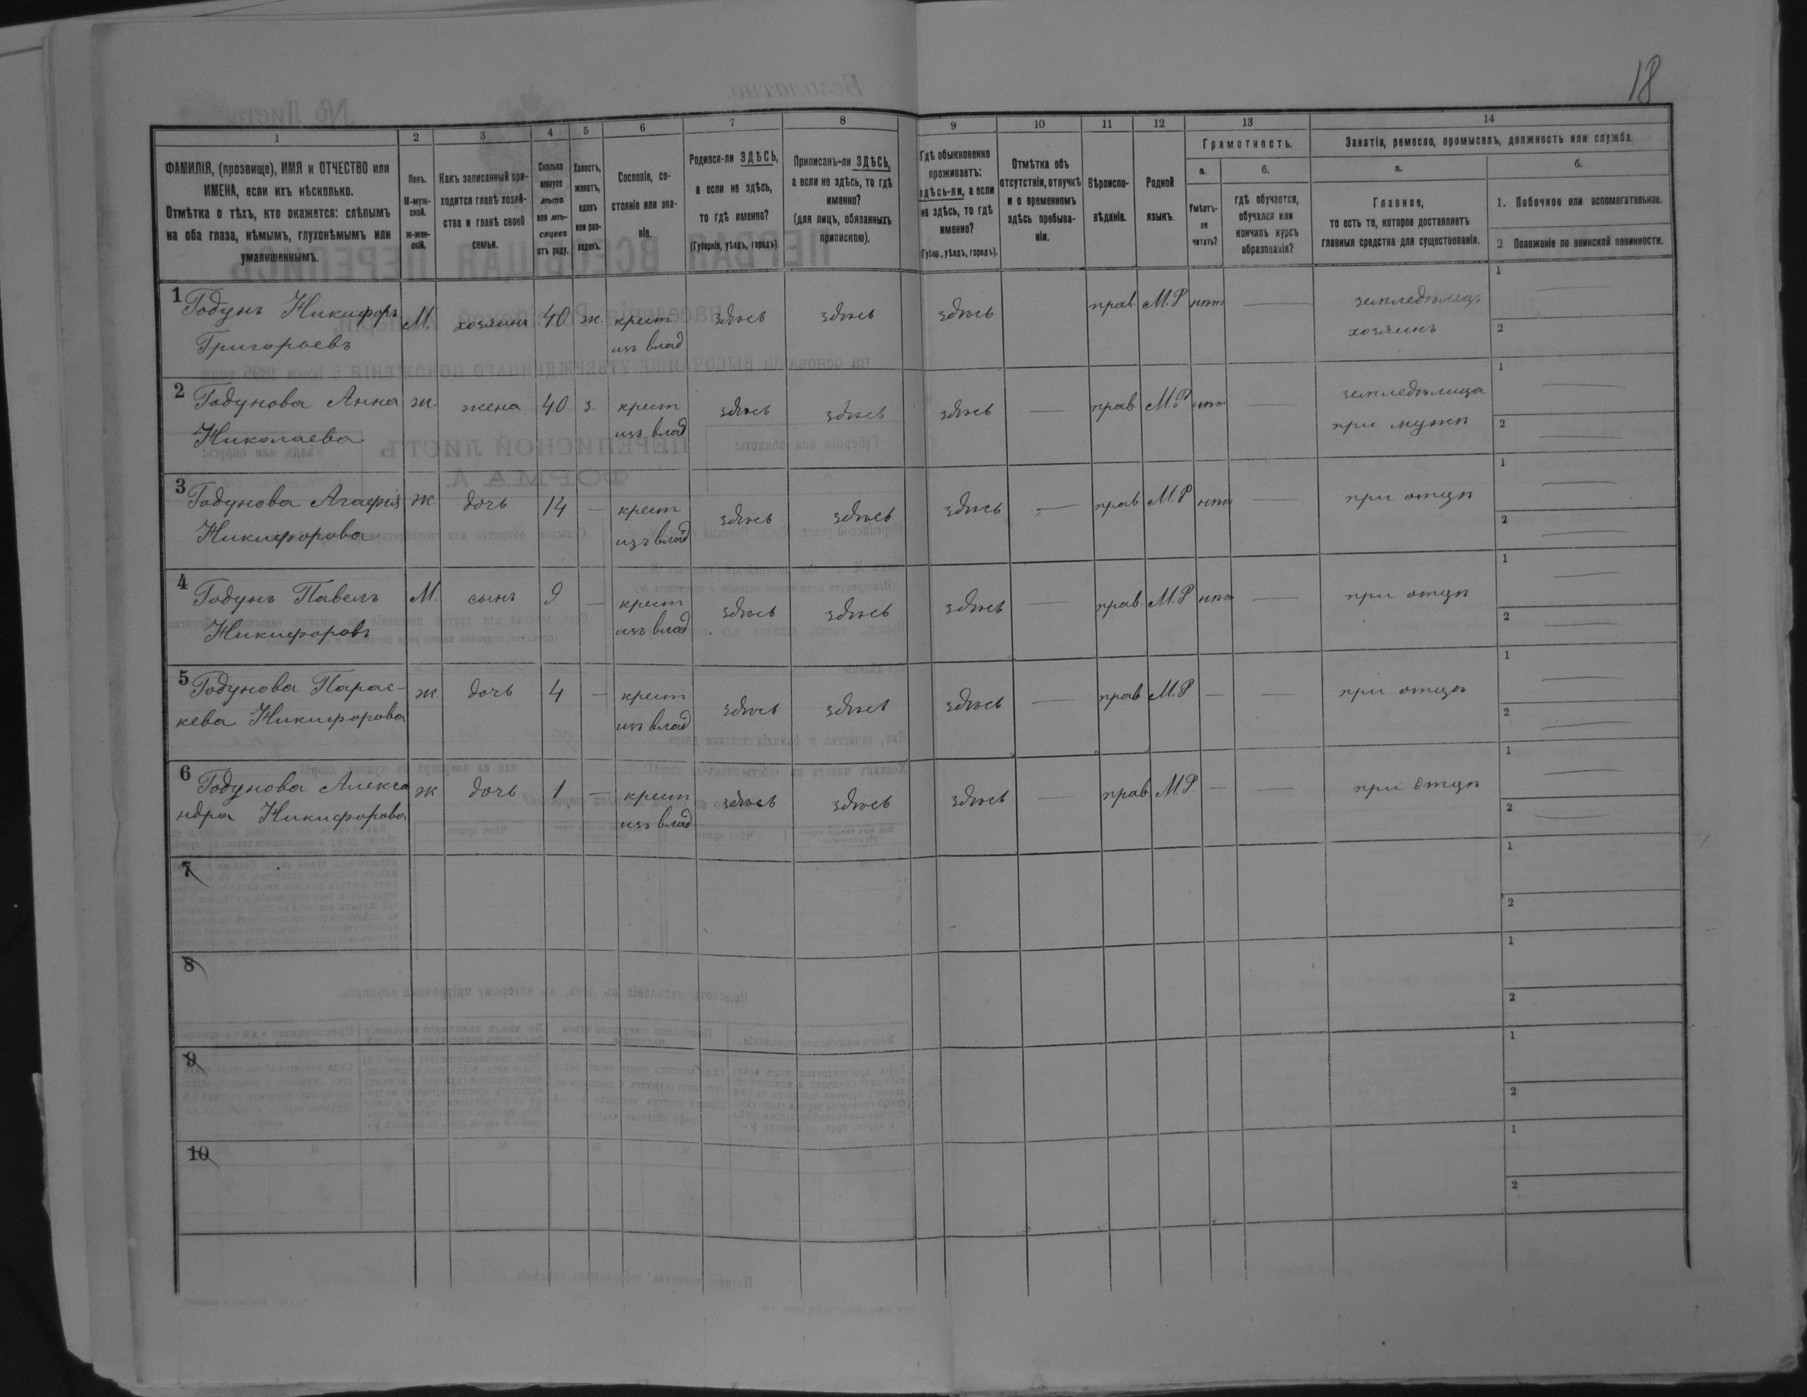 18
1 2 3 4 5 6 7 8 9 10 11 12 13 14
ФАМИЛІЯ, (прозвище), ИМЯ и ОТЧЕСТВО или
ИМЕНА, если ихъ нѣсколько.
Отмѣтка о тѣхъ, кто окажется: слѣпымъ
на оба глаза, нѣмымъ, глухонѣмымъ или
умалишеннымъ.
Полъ.
М-муж-
ской.
ж-жен-
скій.
Какъ записанный при-
ходится главѣ хозяй-
ства и главѣ своей
семьи.
Сколько
минуло
лѣтъ
или мѣ-
сяцевъ
отъ роду.
Холостъ,
женатъ,
вдовъ
или раз-
веденъ.
Сословіе, со-
стояніе или зва-
ніе.
Родился-ли ЗДѢСЬ,
а если не здѣсь,
то гдѣ именно?
(Губернія, уѣздъ, городъ).
Приписанъ-ли ЗДѢСЬ,
а если не здѣсь, то гдѣ
именно?
(для лицъ, обязанныхъ
припискою).
Гдѣ обыкновенно
проживаетъ:
здѣсь-ли, а если
не здѣсь, то гдѣ
именно?
(Губер., уѣздъ, городъ).
Отмѣтка объ
отсутствіи, отлучкѣ
и о временномъ
здѣсь пребыва-
ніи.
Вѣроиспо-
вѣданіе.
Родной
языкъ.
Грамотность.
а.
Умѣетъ-
ли
читать?
б.
гдѣ обучается,
обучался или
кончилъ курсъ
образованія?
Занятія, ремесло, промыселъ, должность или служба.
а.
Главное,
то есть то, которое доставляетъ
главныя средства для существованія.
б.
1. Побочное или вспомогательное.
2 Положеніе по воинской повинности.
1 Годунъ Никифоръ М. хозяинъ 40 ж. крест здѣсь здѣсь здѣсь прав М.Р нѣт — земледѣлецъ 1
Григорьевъ изъ влад хозяинъ 2
2 Годунова Анна ж. жена 40 з. крест здѣсь здѣсь здѣсь — прав М.Р нѣт — земледѣлица 1 —
Николаева изъ влад при мужѣ 2 —
3 Годунова Агафія ж. дочь 14 — крест здѣсь здѣсь здѣсь — прав М.Р нѣт — при отцѣ 1 —
Никифорова изъ влад 2 —
4 Годунъ Павелъ М. сынъ 9 — крест здѣсь здѣсь здѣсь — прав М.Р нѣт — при отцѣ 1 —
Никифоровъ изъ влад 2 —
5 Годунова Парас- ж. дочь 4 — крест здѣсь здѣсь здѣсь — прав М.Р — — при отцѣ 1 —
кева Никифорова изъ влад 2 —
6 Годунова Алекса ж дочь 1 — крест здѣсь здѣсь здѣсь — прав МР — — при отцѣ 1 —
ндра Никифорова изъ влад 2 —
7 1
2
8 1
2
9 1
2
10 1
2